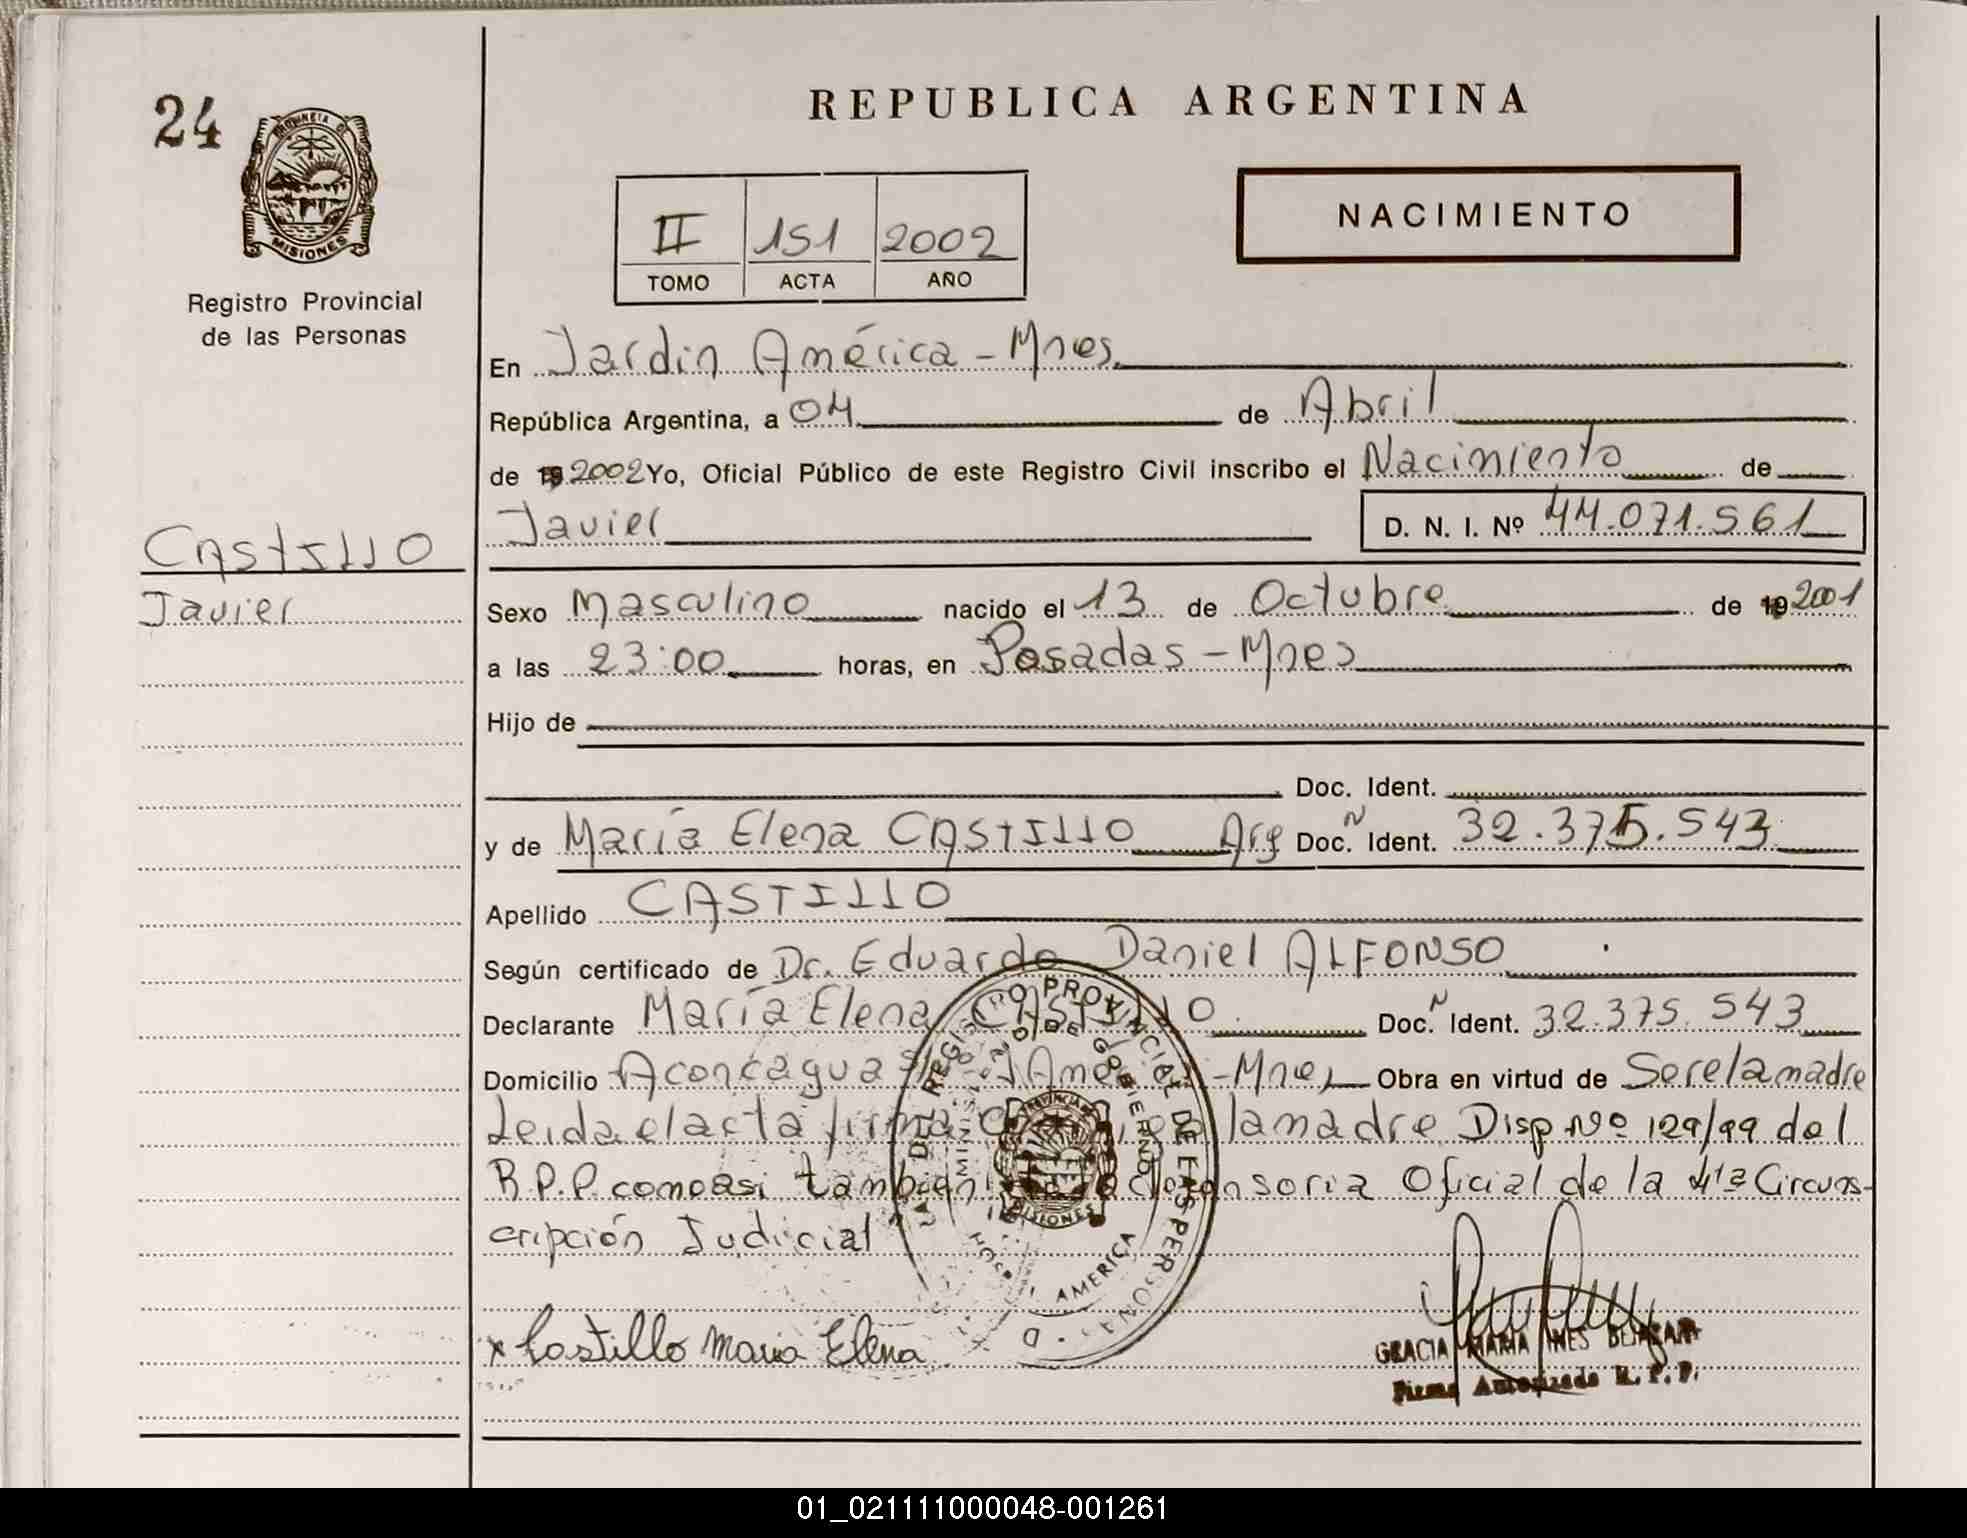 24
PROVINCIA DE
MISIONES
Registro Provincial
de las Personas
REPUBLICA ARGENTINA
II 151 2002
TOMO ACTA AÑO
NACIMIENTO
En Jardin América - Mnes.
República Argentina, a 04 de Abril
de 19 2002 Yo, Oficial Público de este Registro Civil inscribo el Nacimiento de
Javier D. N. I. Nº 44.071.561
CASTILLO
Javier
Sexo Masculino nacido el 13 de Octubre de 19 2001
a las 23:00 horas, en Posadas - Mnes
Hijo de
Doc. Ident.
y de María Elena CASTILLO Arg Doc. N Ident. 32.375.543
Apellido CASTILLO
Según certificado de Dr. Eduardo Daniel ALFONSO
Declarante María Elena CASTILLO Doc. N Ident. 32.375.543
Domicilio Aconcagua - Mnes Obra en virtud de Ser el a madre
Leida el acta firma la madre Disp Nº 129/99 del
R.P.P. como asi tambien defensoria Oficial de la 4ta Circuns-
cripción Judicial
REGISTRO PROVINCIAL DE LAS PERSONAS
MINISTERIO DE GOBIERNO
MISIONES
AMERICA
x Castillo Maria Elena
GRACIA MARIA INES
Firma Autorizada R. P. P.
01_021111000048-001261